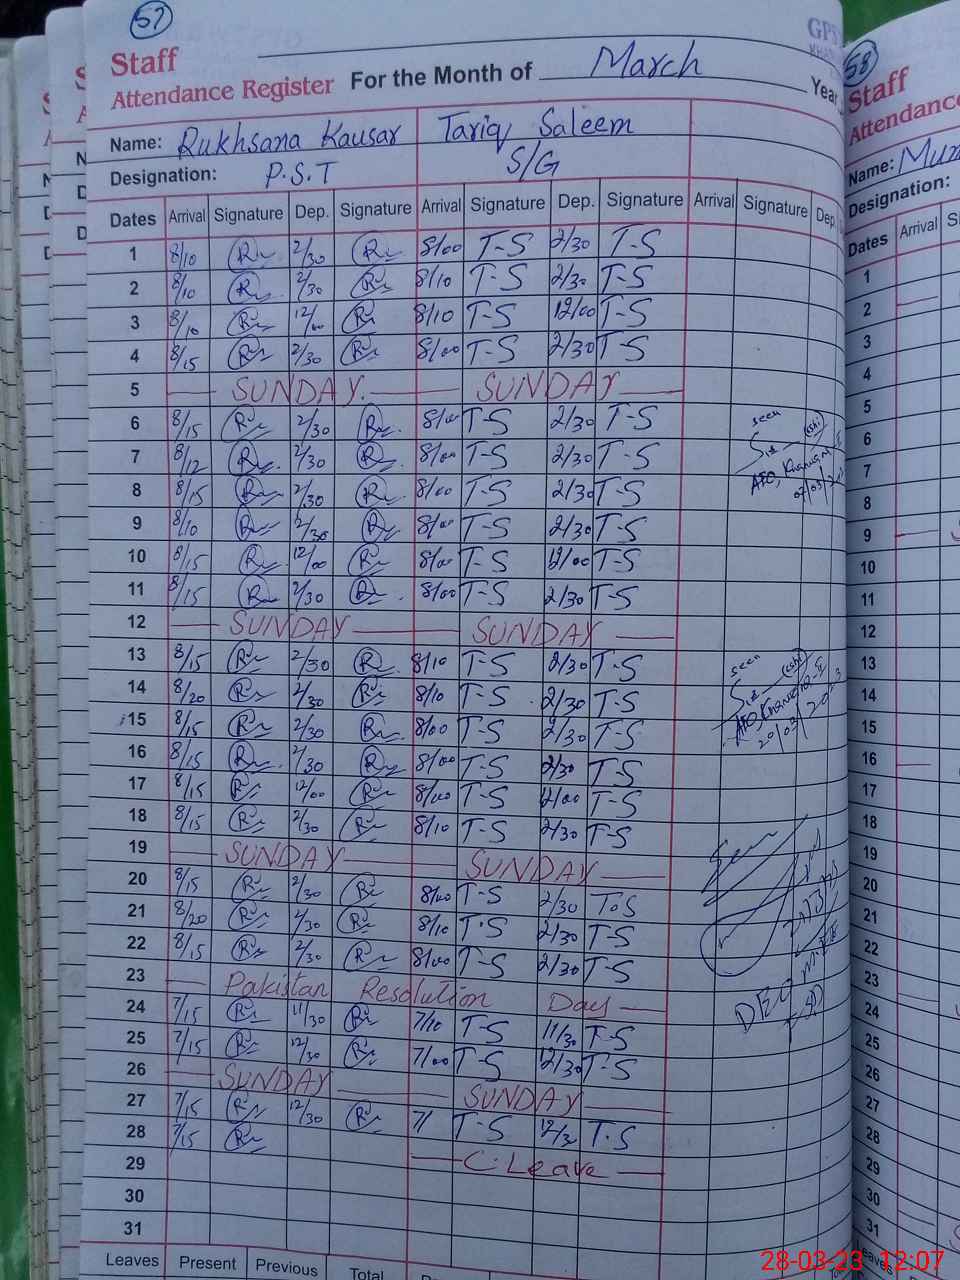 57
Staff
Attendance Register For the Month of March Year
Name: Rukhsana Kausar Tariq Saleem
Designation: P.S.T S/G
Dates Arrival Signature Dep. Signature Arrival Signature Dep. Signature Arrival Signature Dep.
1 8/10 2/30 8/00 T-S 2/30 T-S
2 8/10 2/30 8/10 T-S 2/30 T-S
3 8/10 12/00 8/10 T-S 12/00 T-S
4 8/15 2/30 8/00 T-S 2/30 T-S
5 SUNDAY SUNDAY
6 8/15 2/30 8/00 T-S 2/30 T-S seen
7 8/12 2/30 8/00 T-S 2/30 T-S
8 8/15 2/30 8/00 T-S 2/30 T-S
9 8/10 2/30 8/00 T-S 2/30 T-S
10 8/15 12/00 8/00 T-S 12/00 T-S
11 8/15 2/30 8/00 T-S 2/30 T-S
12 SUNDAY SUNDAY
13 8/15 2/30 8/10 T-S 2/30 T-S seen
14 8/20 2/30 8/10 T-S 2/30 T-S
15 8/15 2/30 8/00 T-S 2/30 T-S
16 8/15 2/30 8/00 T-S 2/30 T-S
17 8/15 12/00 8/00 T-S 12/00 T-S
18 8/15 2/30 8/10 T-S 2/30 T-S
19 SUNDAY SUNDAY
20 8/15 2/30 8/00 T-S 2/30 T.S
21 8/20 2/30 8/10 T.S 2/30 T-S
22 8/15 2/30 8/00 T-S 2/30 T-S
23 Pakistan Resolution Day
24 7/15 11/30 7/10 T-S 11/30 T-S
25 7/15 12/30 7/00 T-S 12/30 T-S
26 SUNDAY SUNDAY
27 7/15 12/30 7/ T-S 12/30 T.S
28 7/15 C.Leave
29
30
31
Leaves Present Previous Total
58
Staff
Attendance
Name:
Designation:
Dates Arrival
1
2
3
4
5
6
7
8
9
10
11
12
13
14
15
16
17
18
19
20
21
22
23
24
25
26
27
28
29
30
31
Leaves
28-03-23 12:07